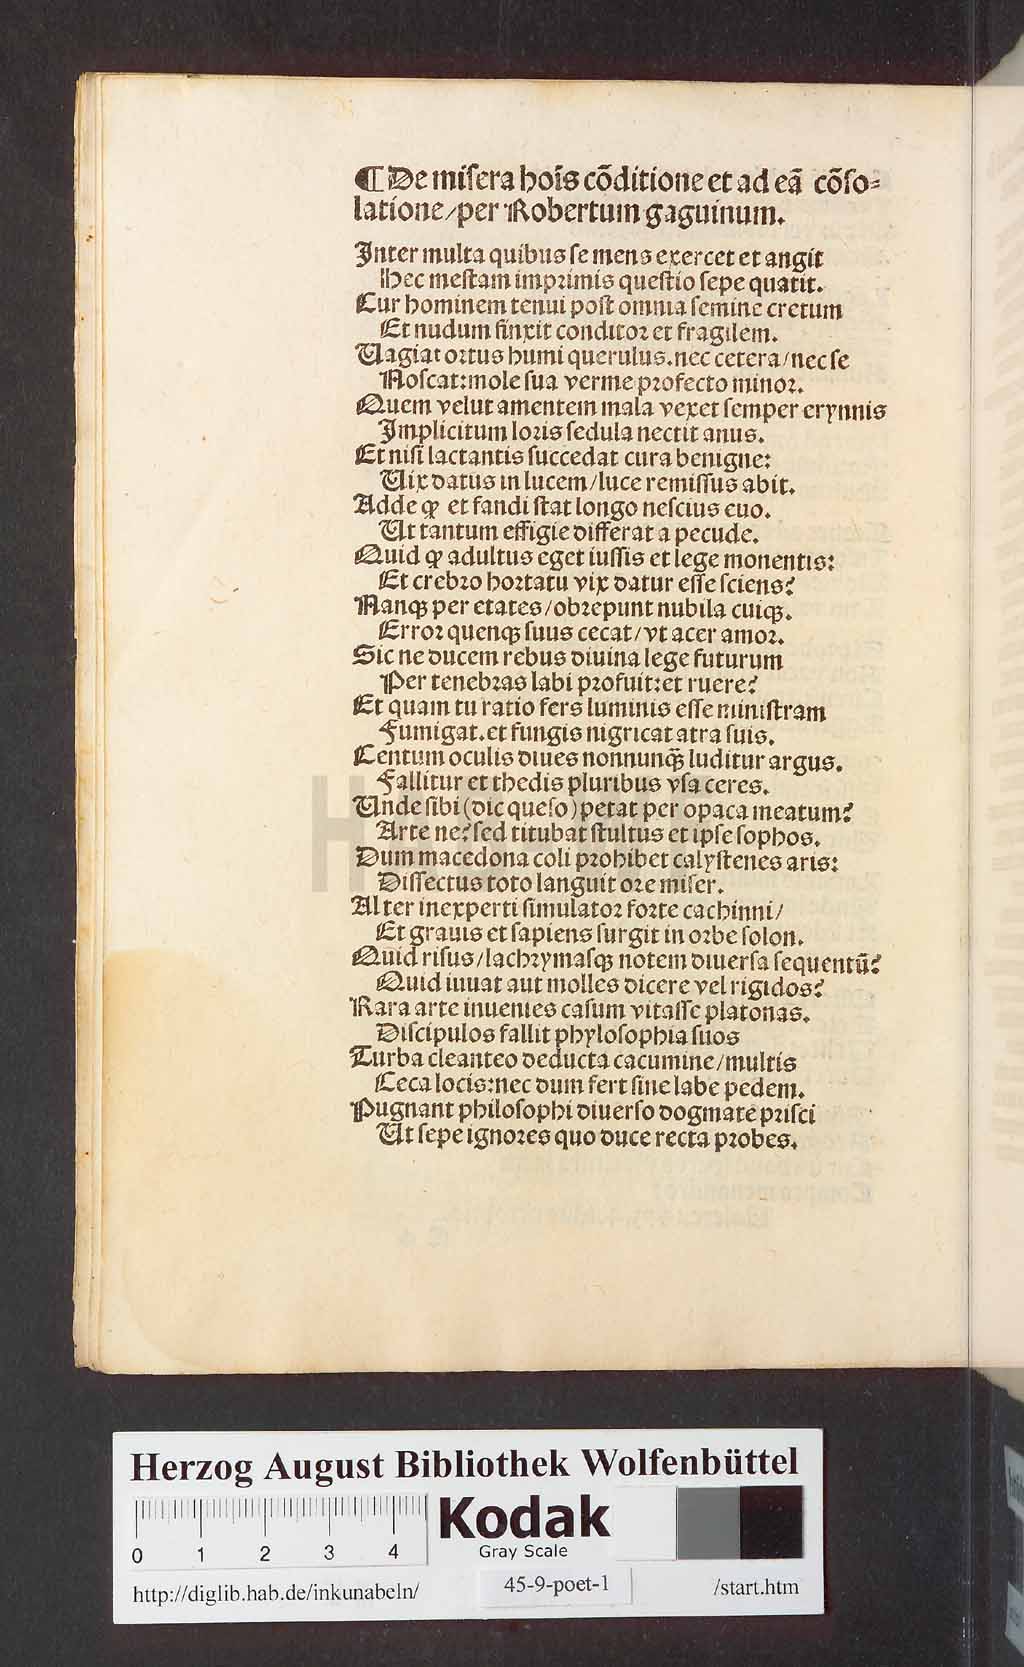 ¶ De miſera hoīs cōditione et ad eā cōſo⸗
latione/per Robertum gaguinum.
Inter multa quibus ſe mens exercet et angit
Hec meſtam imprimis queſtio ſepe quatit.
Cur hominem tenui poſt omnia ſemine cretum
Et nudum finxit conditor et fragilem.
Uagiat ortus humi querulus.nec cetera/nec ſe
Noſcat:mole ſua verme profecto minor.
Quem velut amentem mala vexet ſemper erynnis
Implicitum loris ſedula nectit anus.
Et niſi lactantis ſuccedat cura benigne:
Uix datus in lucem/luce remiſſus abit.
Adde ꝙ et fandi ſtat longo neſcius euo.
Ut tantum effigie differat a pecude.
Quid ꝙ adultus eget iuſſis et lege monentis:
Et crebro hortatu vix datur eſſe ſciens?
Nanqꝫ per etates/obrepunt nubila cuiqꝫ.
Error quenqꝫ ſuus cecat/vt acer amor.
Sic ne ducem rebus diuina lege futurum
Per tenebras labi profuit:et ruere?
Et quam tu ratio fers luminis eſſe miniſtram
Fumigat.et fungis nigricat atra ſuis.
Centum oculis diues nonnunqꝫ̄ luditur argus.
Fallitur et thedis pluribus vſa ceres.
Unde ſibi (dic queſo) petat per opaca meatum?
Arte ne?ſed titubat ſtultus et ipſe ſophos.
Dum macedona coli prohibet calyſtenes aris:
Diſſectus toto languit ore miſer.
Alter inexperti ſimulator forte cachinni/
Et grauis et ſapiens ſurgit in orbe ſolon.
Quid riſus/lachrymaſqꝫ notem diuerſa ſequentū?
Quid iuuat aut molles dicere vel rigidos?
Rara arte inuenies caſum vitaſſe platonas.
Diſcipulos fallit phyloſophia ſuos
Turba cleanteo deducta cacumine/multis
Ceca locis:nec dum fert ſine labe pedem.
Pugnant philoſophi diuerſo dogmate priſci
Ut ſepe ignores quo duce recta probes.
HAB
Herzog August Bibliothek Wolfenbüttel
0 1 2 3 4
Kodak
Gray Scale
http://diglib.hab.de/inkunabeln/
45-9-poet-1
/start.htm